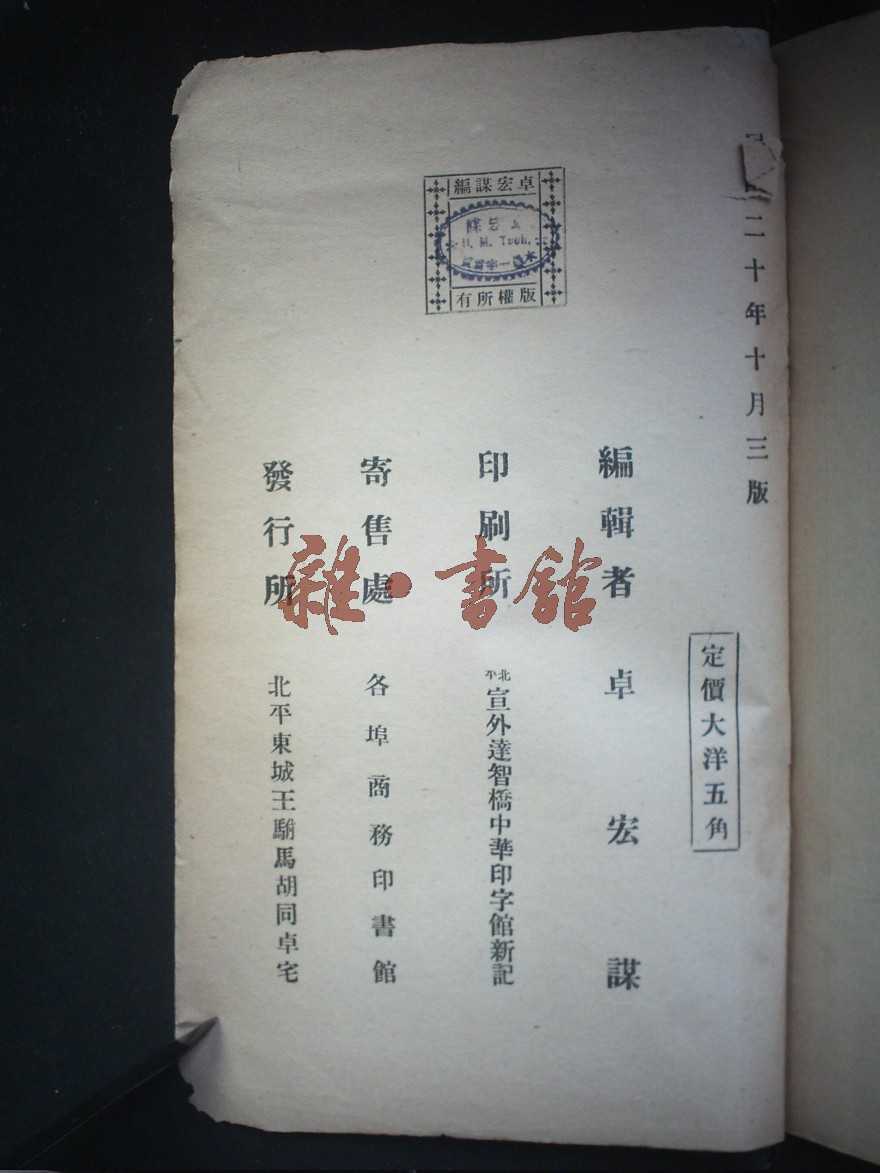 二十年十月三版
定價大洋五角
編輯者 卓宏謀
印刷所 北平宣外達智橋中華印字館新記
寄售處 各埠商務印書館
發行所 北平東城王駙馬胡同卓宅
卓宏謀編
H. M. Tsoh.
版權所有
雜·書館